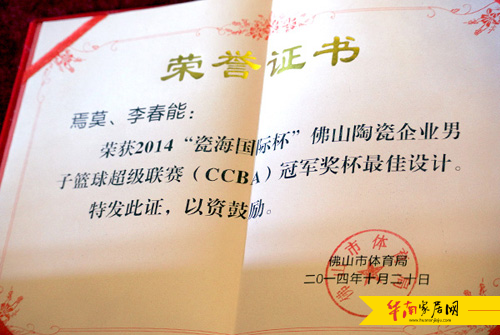 荣誉证书
焉莫、李春能：
荣获2014“瓷海国际杯”佛山陶瓷企业男
子篮球超级联赛（CCBA）冠军奖杯最佳设计。
特发此证，以资鼓励。
佛山市体育局
二〇一四年十月二十日
佛山市体育局
华南家居网